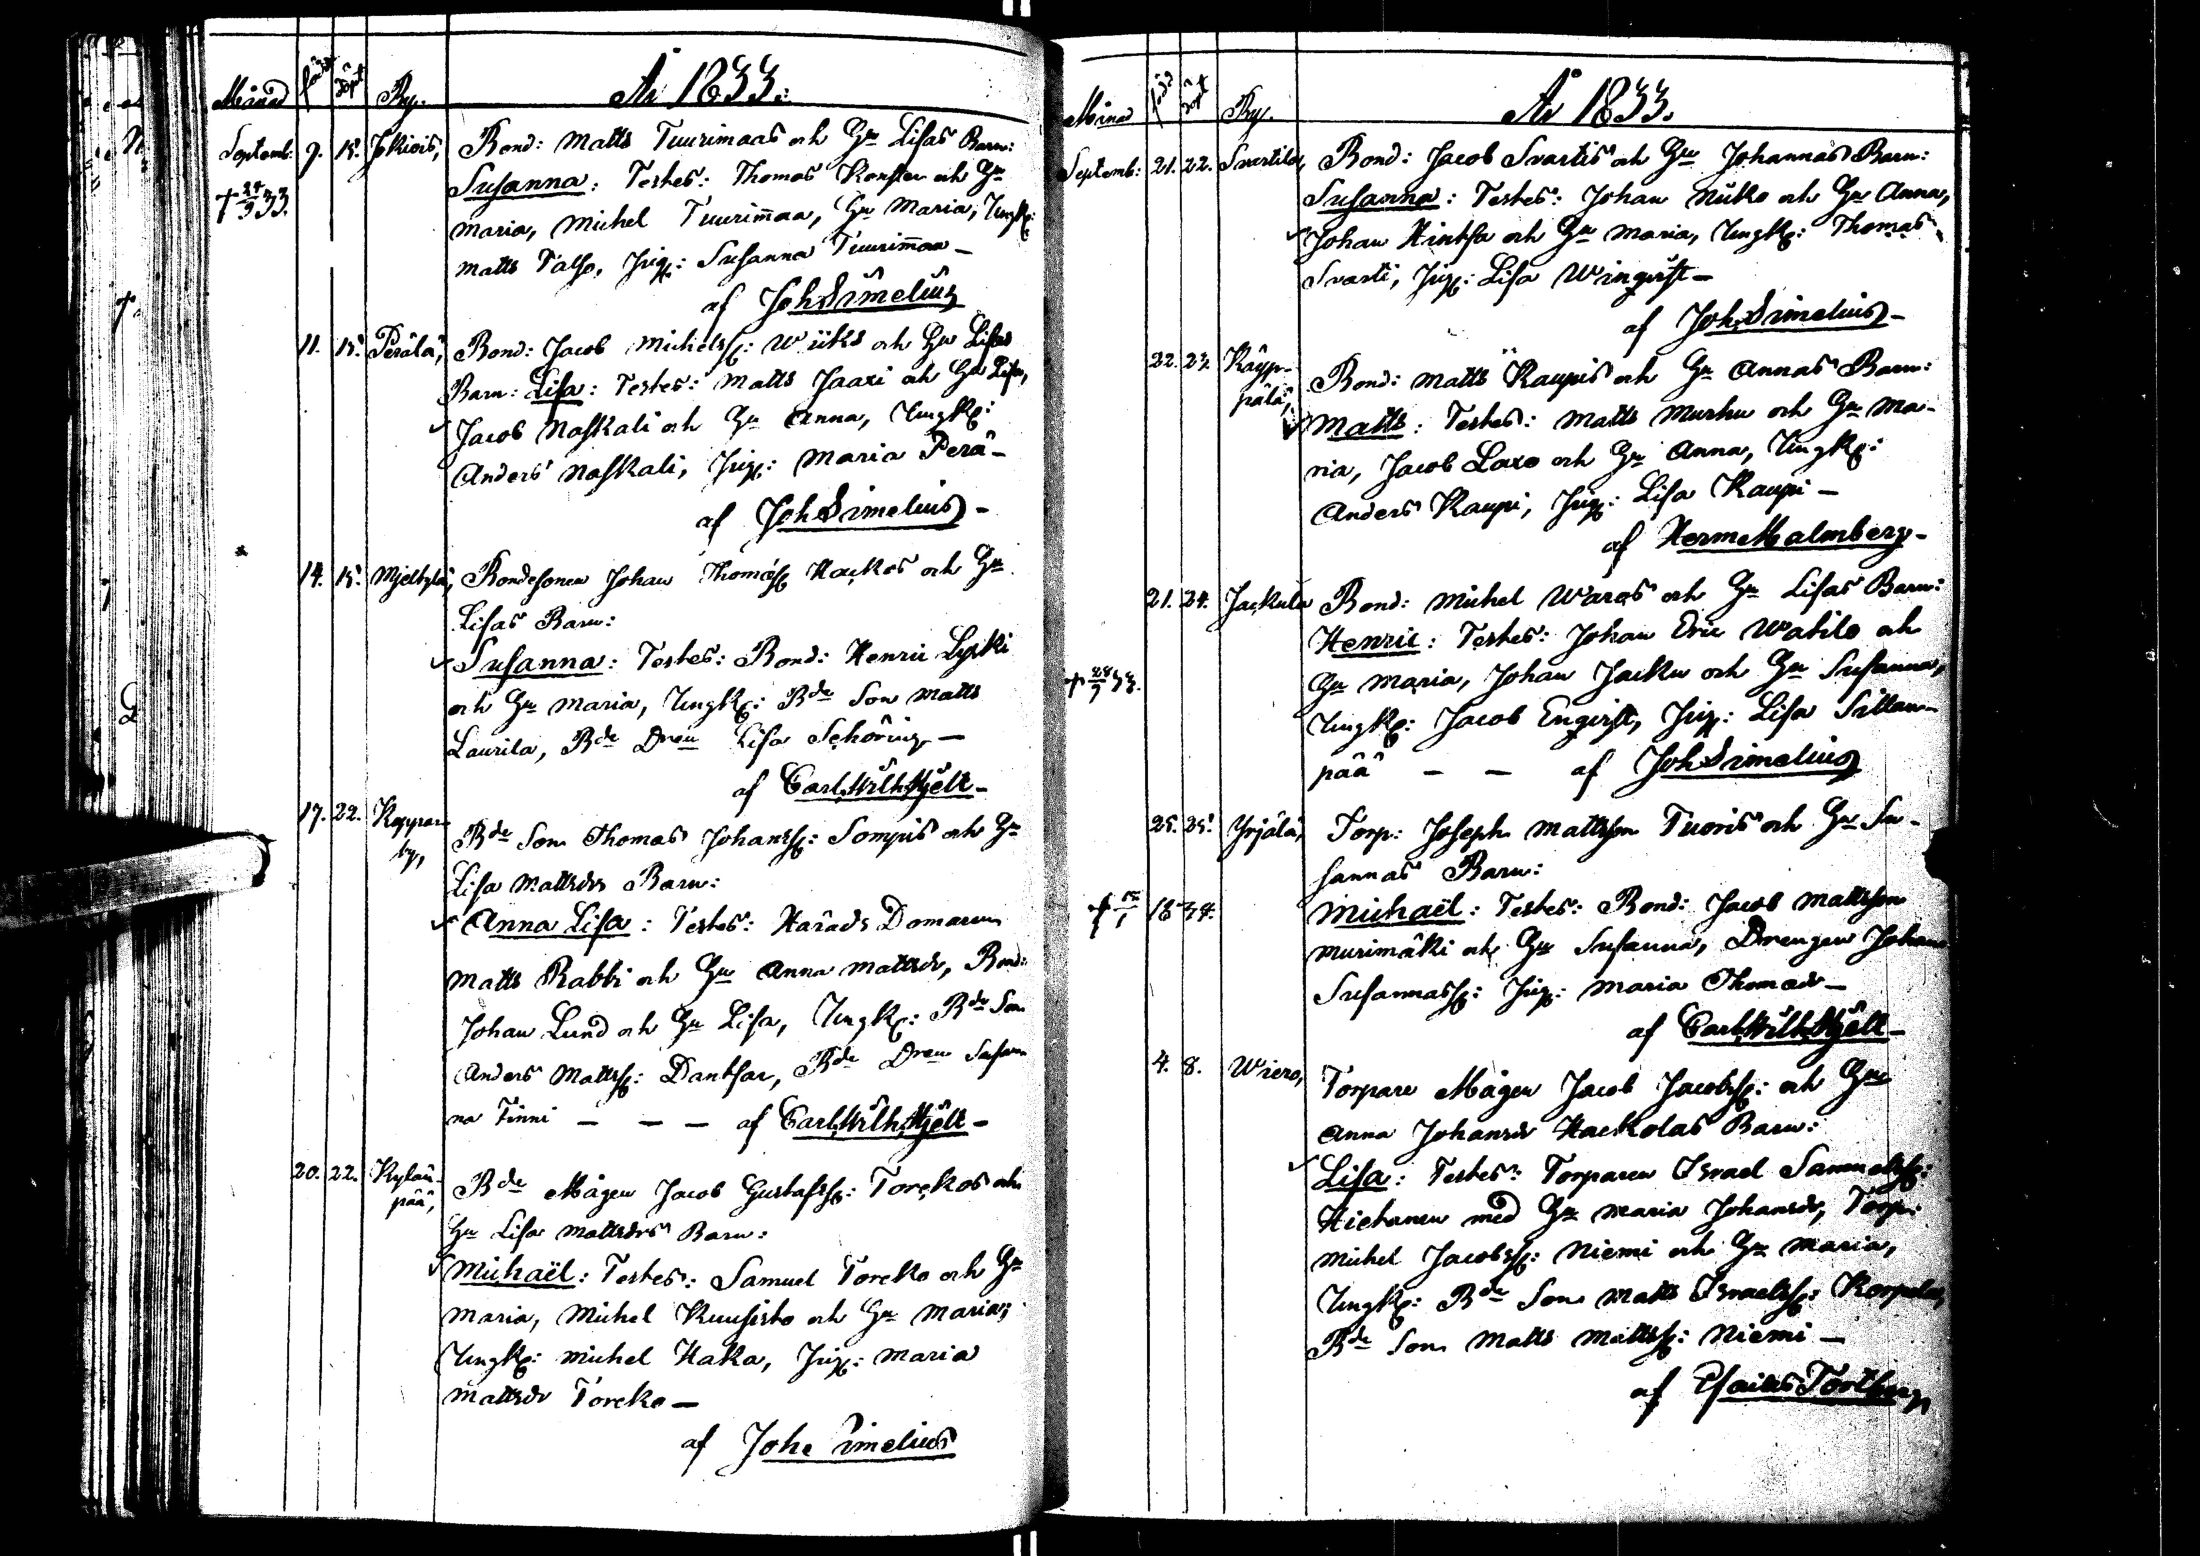 Månad född döpt By. År 1833:
Septemb: 9. 15. Jokiois, Bond: Matts Tuurimaas och Hu Lisas Barn:
† 24/9 33. Susanna: Testes: Thomas Konsten och Hu
Maria, Michel Tuurimaa, Hu Maria, Ungk:
Matts Talso, Pig: Susanna Tuurimaa –
af Joh Simelius
11. 15. Perälä, Bond: Jacob Michelss: Wüks och Hu Lisas
Barn: Lisa: Testes: Matts Jaari och Hu Lisa,
Jacob Naskali och Hu Anna, Ungk:
Anders Naskali, Pig: Maria Perä –
af Joh Simelius –
14. 15. Mjelbylä, Bondesonen Johan Thomass Hackos och Hu
Lisas Barn:
Susanna: Testes: Bond: Henric Lyski
och Hu Maria, Ungk: Bde Son Matts
Laurila, Bde Dren Lisa Schöring –
af Carl Wilh Hjelt –
17. 22. Kappar-
by, Bde Son Thomas Johanss: Sompis och Hu
Lisa Mattsdrs Barn:
Anna Lisa: Testes: Härads Domaren
Matts Rabbi och Hu Anna Mattsdr, Bond:
Johan Lund och Hu Lisa, Ungk: Bde Son
Anders Mattss: Dantsar, Bde Dren Susan
na Finni – – – af Carl Wilh Hjelt –
20. 22. Kylän-
pää, Bde Mågen Jacob Gustafss: Torckos och
Hu Lisa Mattsdrs Barn:
Michaël: Testes: Samuel Torcko och Hu
Maria, Michel Kuusisto och Hu Maria,
Ungk: Michel Haka, Pig: Maria
Mattsdr Torcko –
af Joh Simelius
Månad född döpt By. År 1833.
Septemb: 21. 22. Svartila, Bond: Jacob Svartis och Hu Johannas Barn:
Susanna: Testes: Johan Niuko och Hu Anna,
Johan Hintsa och Hu Maria, Ungk: Thomas
Svarti, Pig: Lisa Winqvist –
af Joh Simelius –
22. 23. Käyp-
pälä, Bond: Matts Kaupis och Hu Annas Barn:
Matts: Testes: Matts Murhu och Hu Ma-
ria, Jacob Laxo och Hu Anna, Ungk:
Anders Kaupi, Pig: Lisa Kaupi –
af Herm Malmberg –
21. 24. Jackula Bond: Michel Waras och Hu Lisas Barn:
Henric: Testes: Johan Eric Watilo och
† 28/9 33. Hu Maria, Johan Jacku och Hu Susanna,
Ungk: Jacob Enqvist, Pig: Lisa Siltan-
pää – – af Joh Simelius
25. 25. Yrjälä, Torp: Joseph Mattsson Tuoris och Hu Su-
sannas Barn:
18 34. Michaël: Testes: Bond: Jacob Mattsson
Murimäki och Hu Susanna, Drengen Johan
Susannass: Pig: Maria Thomadr –
af Carl Wilh Hjelt –
4. 8. Wiero, Torpare Mågen Jacob Jacobss: och Hu
Anna Johansdr Hackolas Barn:
Lisa: Testes: Torparen Israel Samuelss:
Hietanen med Hu Maria Johansdr, Torp:
Michel Jacobss: Niemi och Hu Maria,
Ungk: Bde Son Matts Israelss: Korpela,
Bde Son Matts Mattss: Niemi –
af Esaias Tortberg